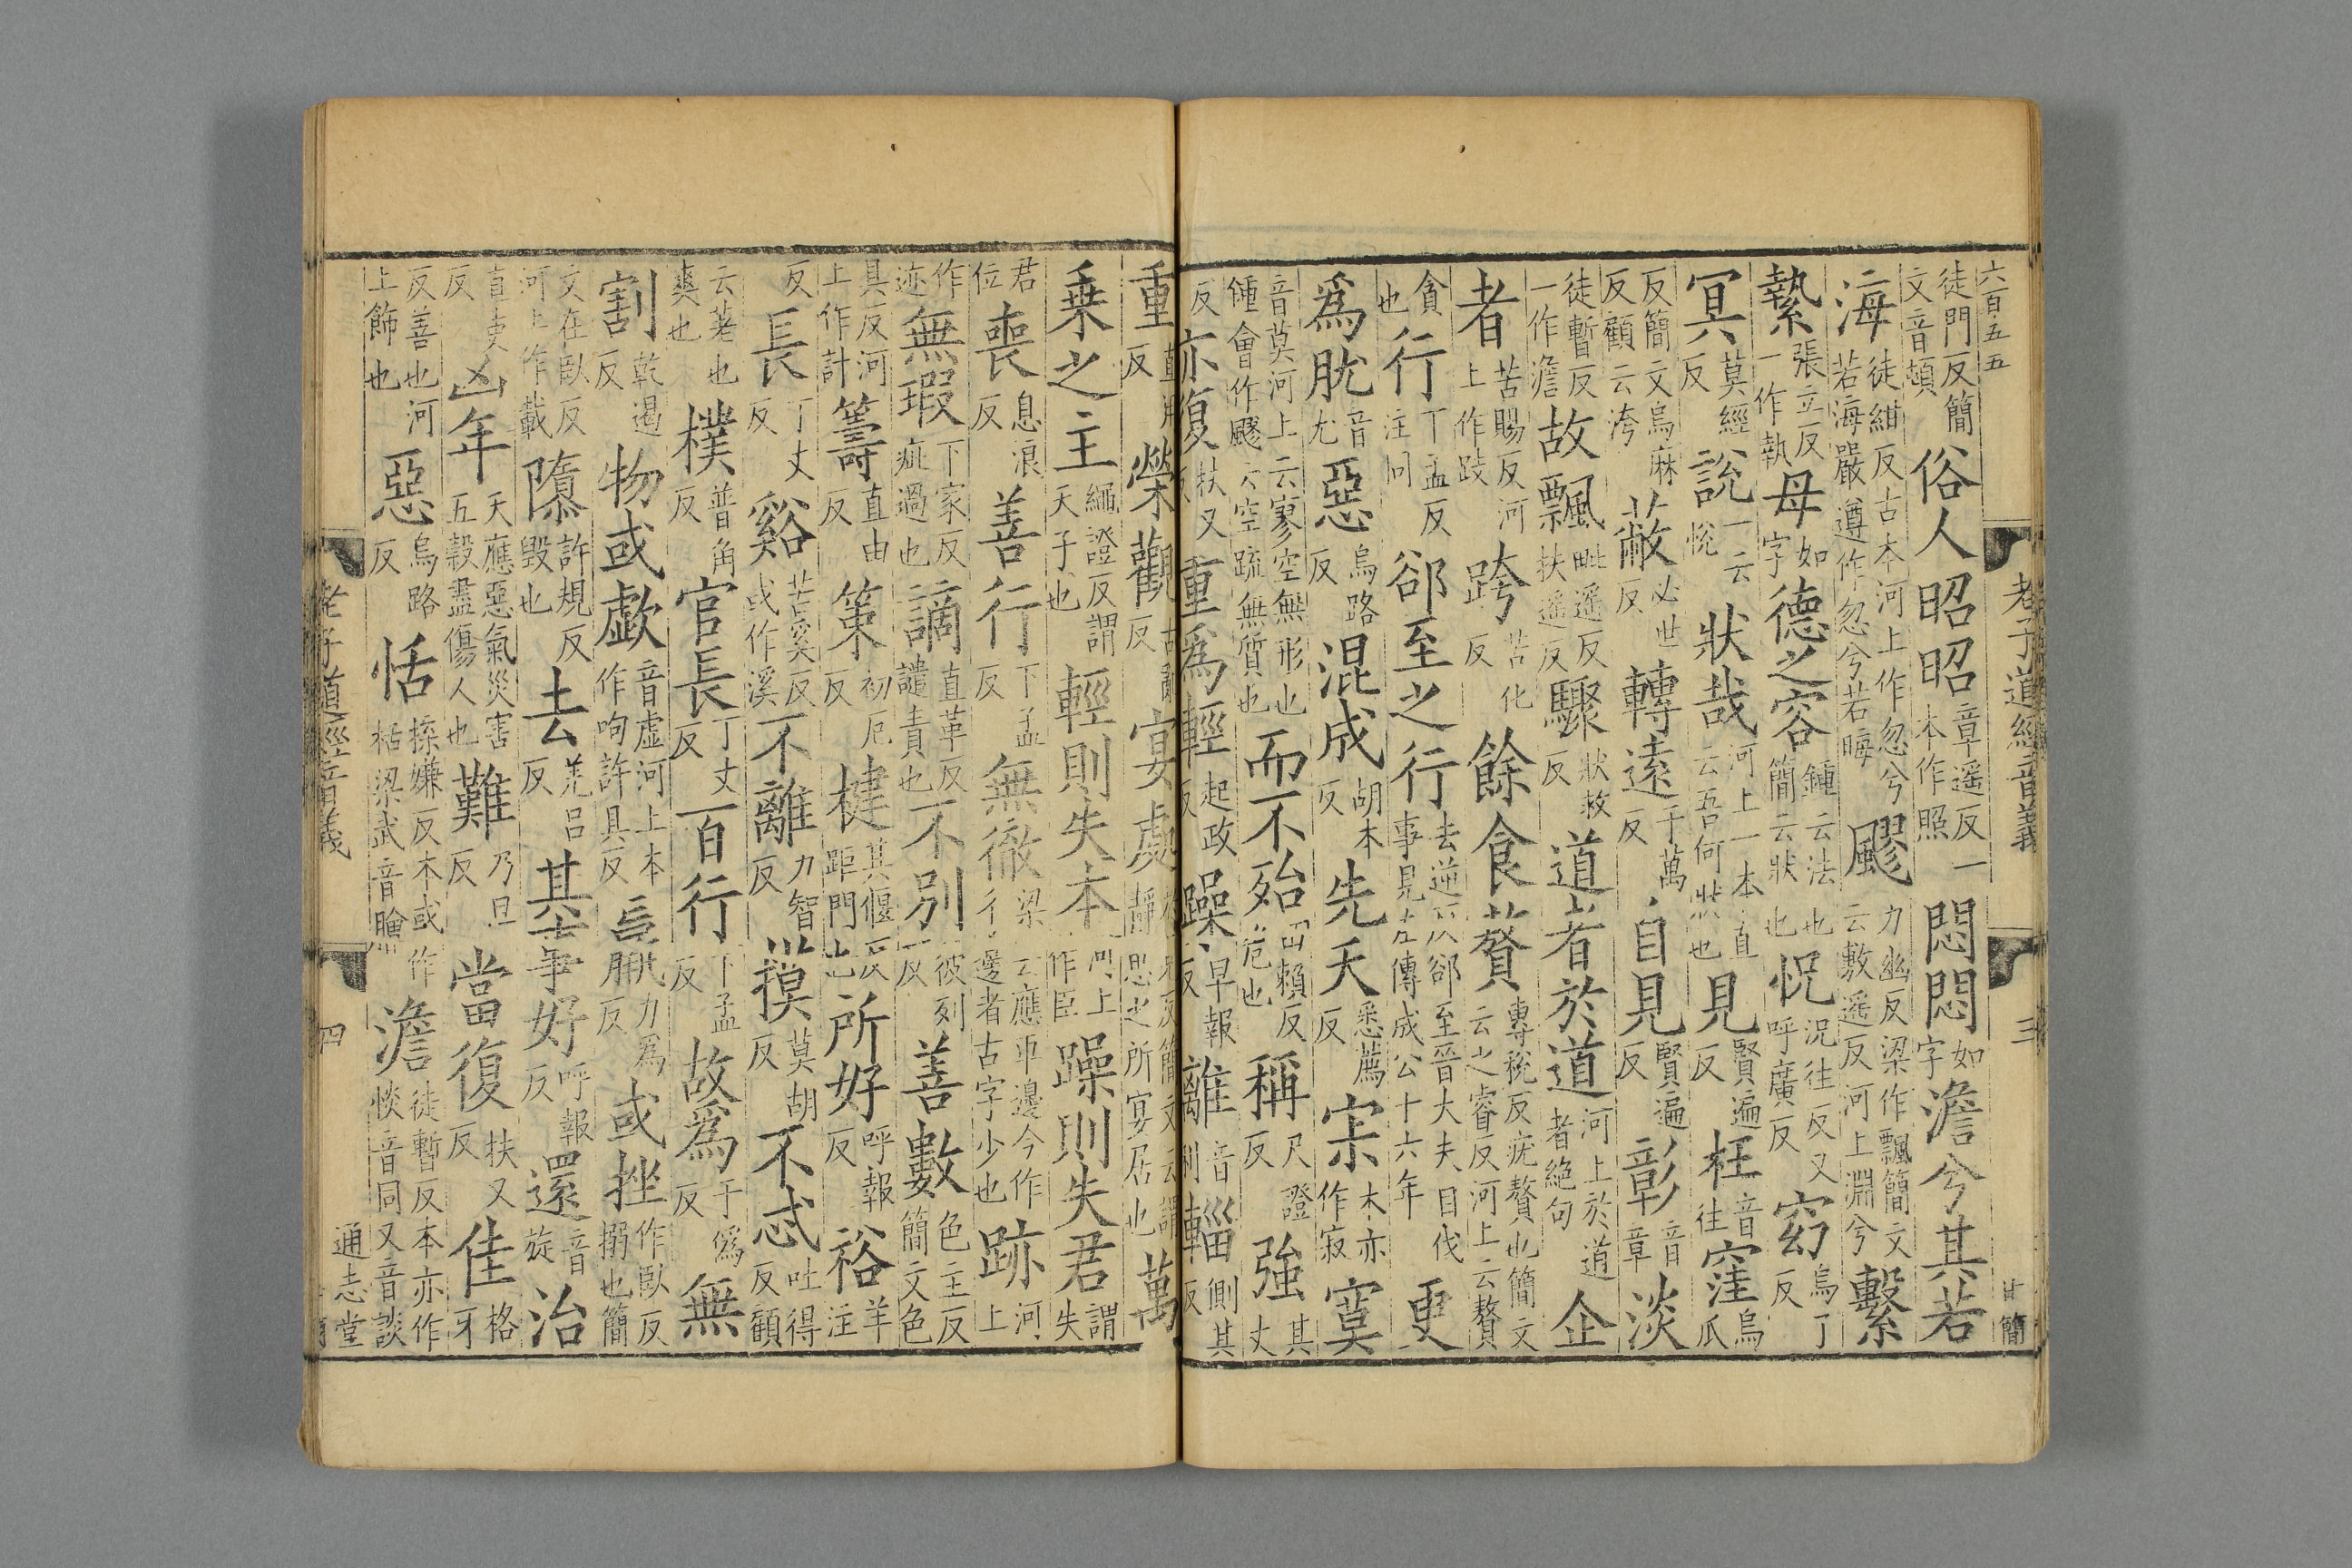 六百五五
老子道經音義 三 甘簡
徒門反簡文音頓俗人昭昭章遥反一本作照悶悶如字澹兮其若
海徒紺反古本河上作忽兮若海嚴遵作忽兮若晦飂力幽反梁作飄簡文云敷遥反河上淵兮繫
縶張立反一作執母如字德之容鍾云法也簡云狀也怳況往反又呼廣反窈烏丁反
冥莫經反說一云悅狀哉河上一本直云吾何狀也見賢遍反枉音往窪烏瓜
反簡文烏麻反顧云洿蔽必世反轉遠于萬反自見賢遍反彰音章淡
徒暫反一作澹故飄毗遥反扶遥反驟狀救反道者於道河上於道者絕句企
者苦賜反河上作跂跨苦化反餘食贅專稅反疣贅也簡文云之睿反河上云贅
貪也行丁孟反注同郤至之行去逆反郤至晉大夫自伐事見左傳成公十六年更
爲肬音尤惡烏路反混成胡本反先天悉薦反宗本亦作寂寞
音莫河上云寥空無形也鍾會作飂云空疏無質也而不殆田賴反危也稱尺證反強其丈
反亦復扶又反重爲輕起政反躁早報反離音利輜側其反
重直用反榮觀古亂反宴處簡文云謂靜思之所宴居也萬
乗之主繩證反謂天子也輕則失本河上作臣躁則失君謂失
君位喪息浪反善行下孟反無徹梁云應車邊今作彳邊者古字少也跡河上
作迹無瑕下家反疵過也讁直革反譴責也不別彼列反善數色主反簡文色
具反河上作計籌直由反策初厄反楗其偃反距門也所好呼報反裕羊注
反長丁丈反谿苦奚反或作溪不離力智反摸莫胡反不忒吐得反顧
云差也爽也樸普角反官長丁丈反百行下孟反故爲于僞反無
割乾遏反物或歔音虚河上本作呴許具反羸力爲反或挫作臥反搦也簡
文在臥反河上作載隳許規反毁也去羌呂反其事好呼報反還音旋治
直吏反凶年天應惡氣災害五穀盡傷人也難乃旦反當復扶又反佳格牙
反善也河上飾也惡烏路反恬嫌反本或作栝梁武音澹徒暫反本亦作惔音同又音談
老子道經音義 四 通志堂